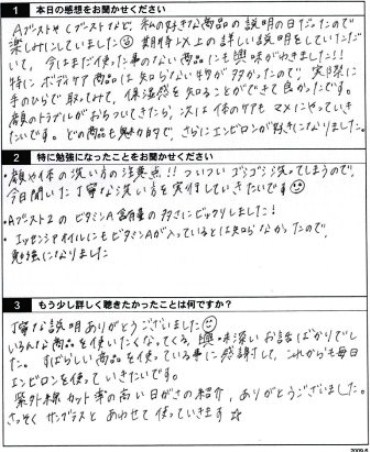 1 本日の感想をお聞かせください
AブーストやCブーストなど、私の好きな商品の説明の日だったので
楽しみにしていました 期待以上の詳しい説明をしていただ
いて、今はまだ使った事のない商品にも興味がわきました!!
特にボディケア商品は知らない事が多かったので、実際に
手のひらで取ってみて、保湿感を知ることができて良かったです。
顔のトラブルがおちついてきたら、次は体のケアもマメにやっていき
たいです。どの商品も魅力的で、さらにエンビロンが好きになりました。
2 特に勉強になったことをお聞かせください
・顔や体の洗い方の注意点!! ついついゴシゴシ洗ってしまうので、
今日聞いた丁寧な洗い方を実行していきたいです
・Aブースト2のビタミンA含有量の多さにビックリしました!
・エッセンシャルオイルにもビタミンAが入っているとは知らなかったので、
勉強になりました
3 もう少し詳しく聴きたかったことは何ですか?
丁寧な説明ありがとうございました
いろんな商品を使いたくなってくる、興味深いお話ばかりでし
た。すばらしい商品を使っている事に感謝して、これからも毎日
エンビロンを使っていきたいです。
紫外線カット率の高い日がさの紹介、ありがとうございました。
さっそくサングラスとあわせて使っていきます☆